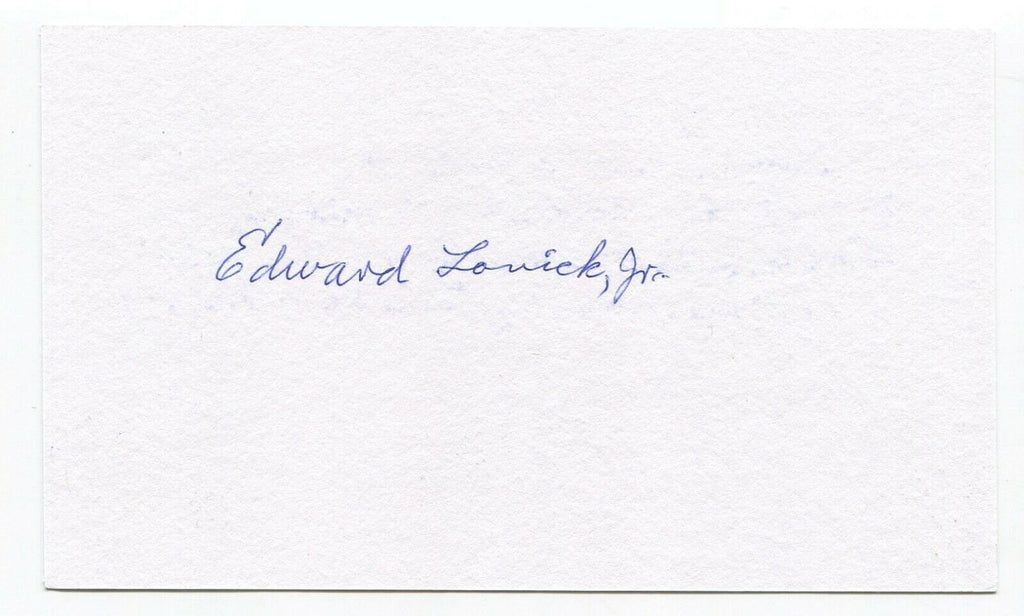 Edward Lovick, Jr.